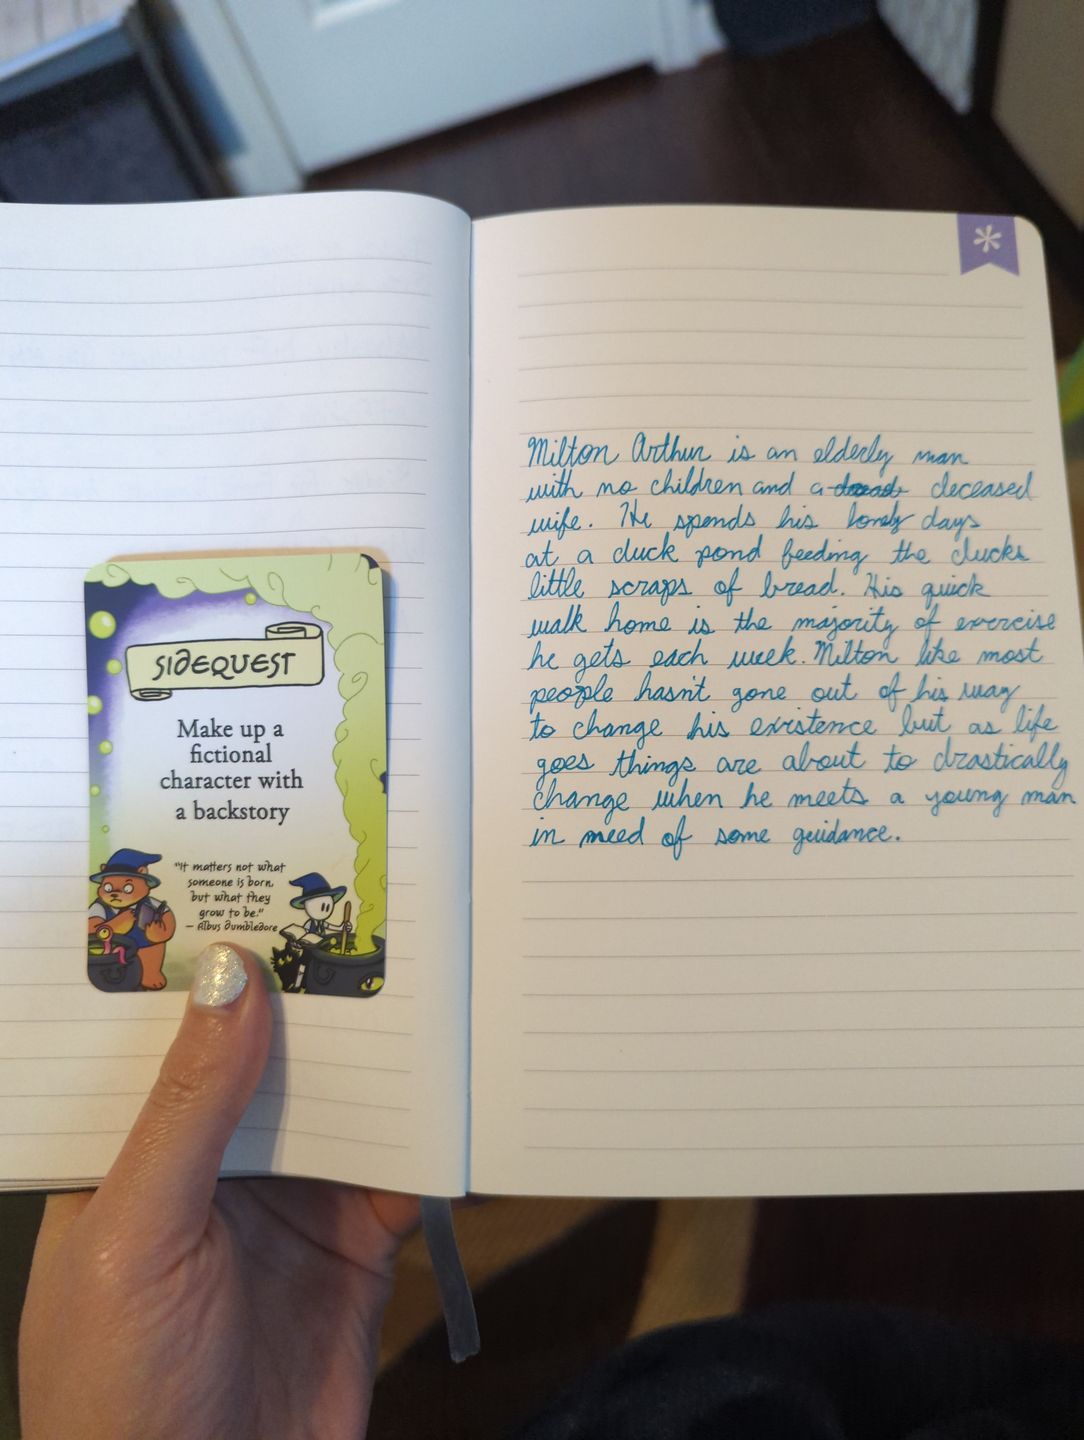 SIDEQUEST
Make up a
fictional
character with
a backstory
"It matters not what
someone is born,
but what they
grow to be."
— Albus Dumbledore
Milton Arthur is an elderly man
with no children and a deceased
wife. He spends his lonely days
at a duck pond feeding the ducks
little scraps of bread. His quick
walk home is the majority of exercise
he gets each week. Milton like most
people hasn't gone out of his way
to change his existence but as life
goes things are about to drastically
change when he meets a young man
in need of some guidance.